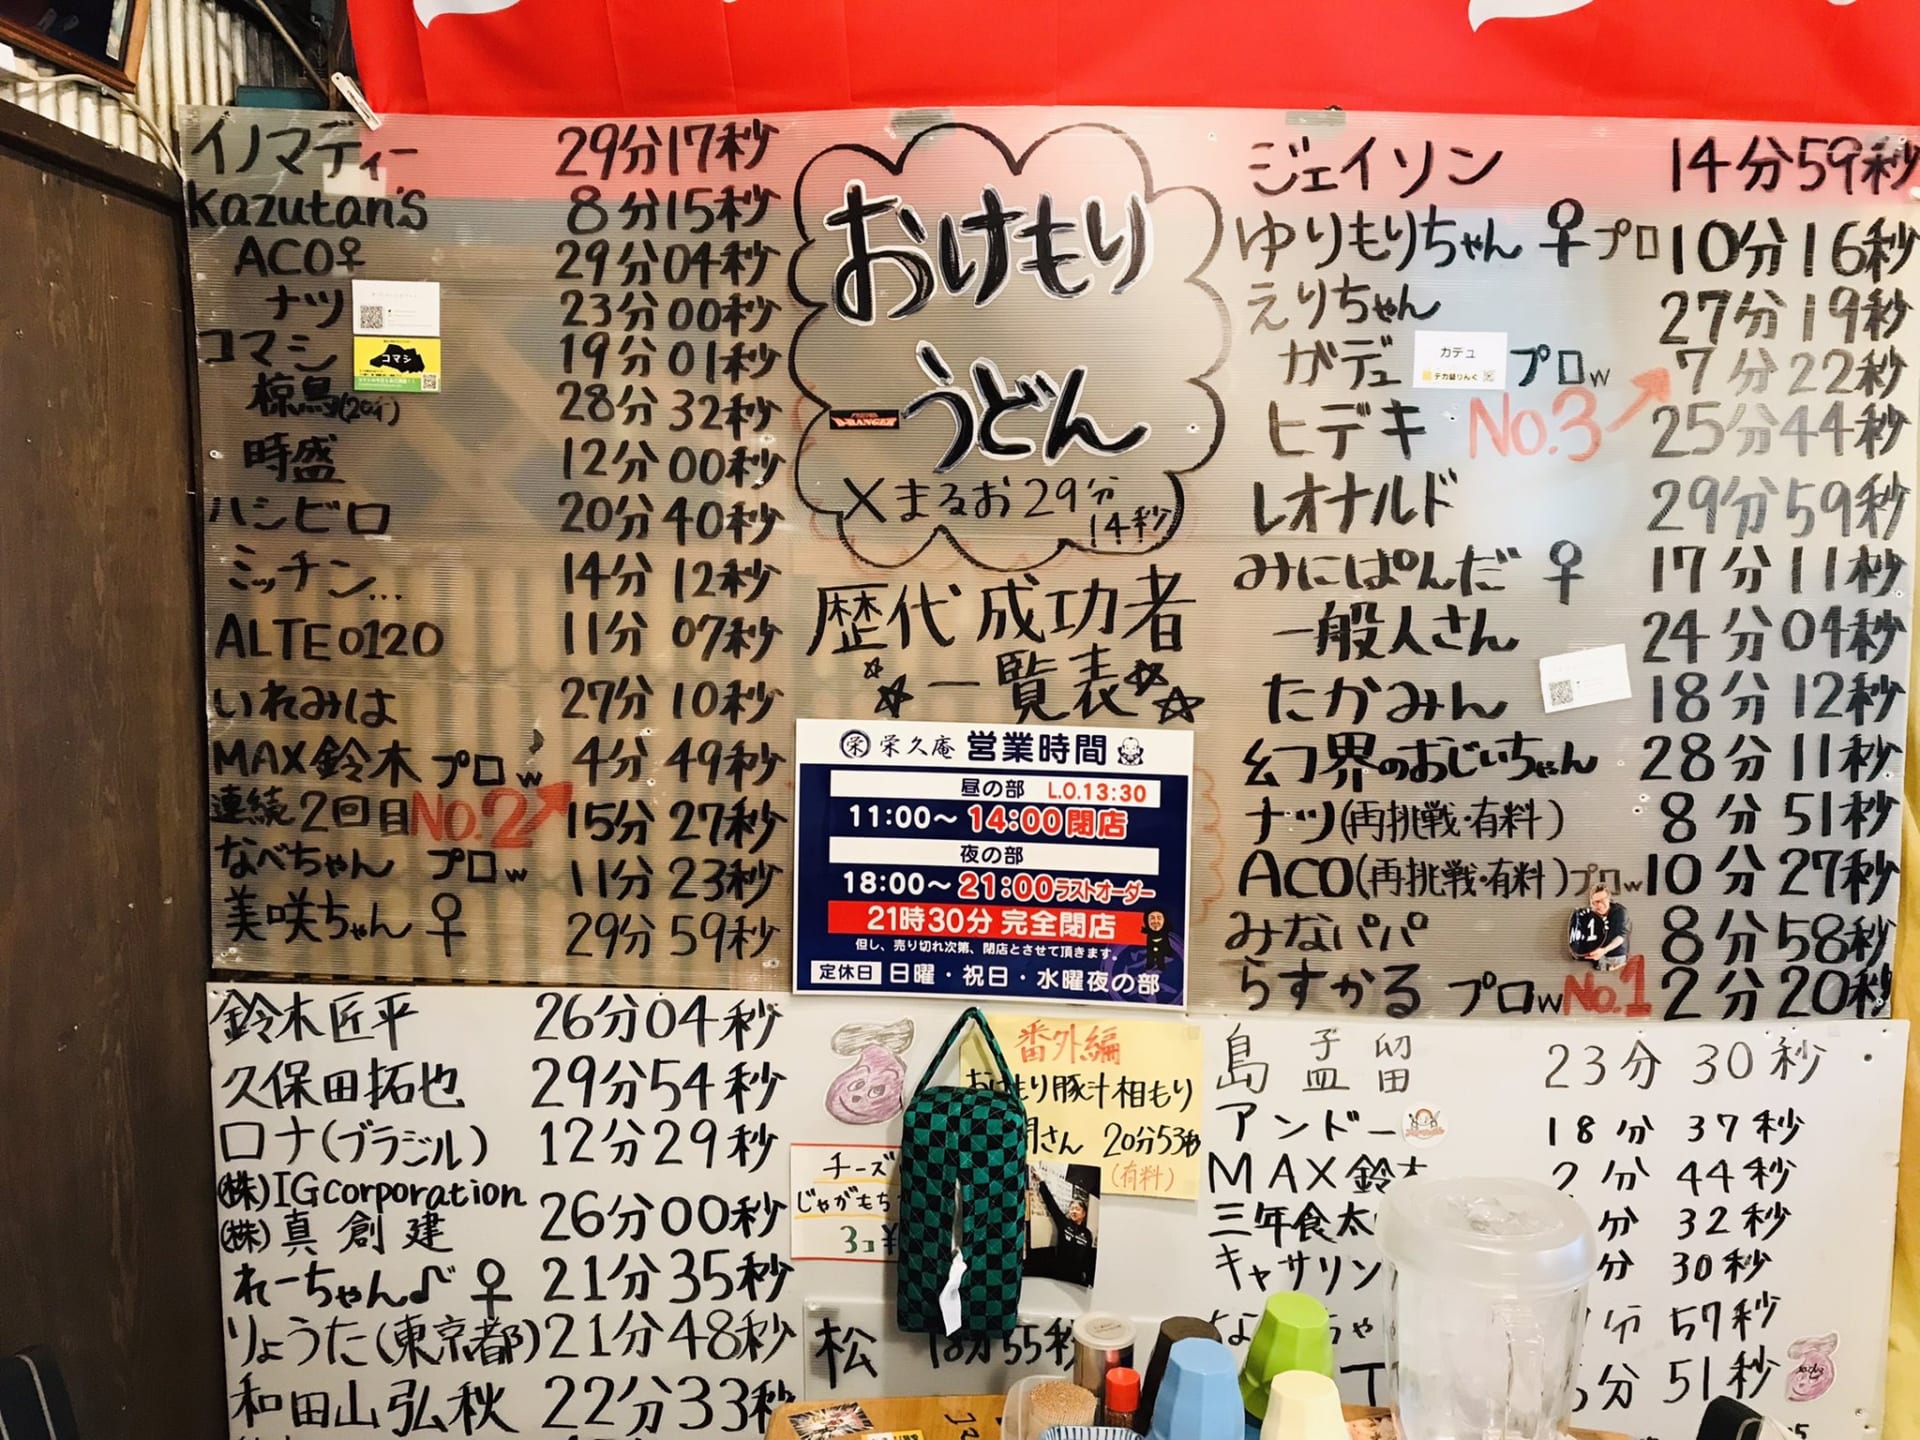 イノマディー 29分17秒
Kazutan's 8分15秒
ACO♀ 29分04秒
ナツ 23分00秒
コマシ 19分01秒
コマシ
椋鳥(20才) 28分32秒
時盛 12分00秒
ハシビロ 20分40秒
ミッチン… 14分12秒
ALTE0120 11分07秒
いれみは 27分10秒
MAX鈴木プロw 4分49秒
連続2回目 No.2 15分27秒
なべちゃん プロw 11分23秒
美咲ちゃん♀ 29分59秒
おけもり
うどん
×まるお29分
14秒
歴代成功者
☆☆一覧表☆☆
栄 栄久庵 営業時間
昼の部 L.O.13:30
11:00〜14:00閉店
夜の部
18:00〜21:00ラストオーダー
21時30分 完全閉店
但し、売り切れ次第、閉店とさせて頂きます。
定休日 日曜・祝日・水曜夜の部
ジェイソン 14分59秒
ゆりもりちゃん♀プロ 10分16秒
えりちゃん 27分19秒
ガデュ プロw 7分22秒
カデュ
デカ盛りんぐ
ヒデキ No.3 25分44秒
レオナルド 29分59秒
みにぱんだ♀ 17分11秒
一般人さん 24分04秒
たかみん 18分12秒
幻界のおじいちゃん 28分11秒
ナツ(再挑戦・有料) 8分51秒
ACO(再挑戦・有料)プロw 10分27秒
みなパパ 8分58秒
No.1
らすかる プロw No.1 2分20秒
鈴木匠平 26分04秒
久保田拓也 29分54秒
ロナ(ブラジル) 12分29秒
(株)IGcorporation
(株)真創建 26分00秒
れーちゃん♪♀ 21分35秒
りょうた(東京都) 21分48秒
和田山弘秋 22分33秒
番外編
おけもり豚汁相もり
さん 20分53秒
(有料)
チーズ
じゃがもち
3コ¥
松 55秒
島 孟 留 23分30秒
アンドー 18分37秒
MAX鈴木 2分44秒
三年食太 分32秒
キャサリン 分30秒
な ちゃ 分57秒
T 分51秒